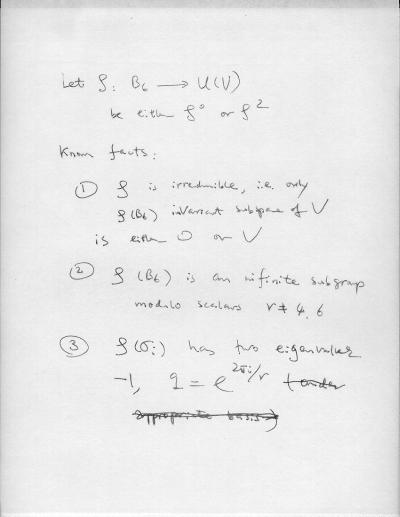 Let ρ: B₆ ⟶ U(V)
be either ρ⁰ or ρ²
Known facts:
① ρ is irreducible, i.e. only
ρ(B₆) invariant subspace of V
is either 0 or V
② ρ(B₆) is an infinite subgroup
modulo scalars r ≠ 4, 6
③ ρ(σᵢ) has two eigenvalues
-1, q = e^{2πi/r} (under
appropriate basis)